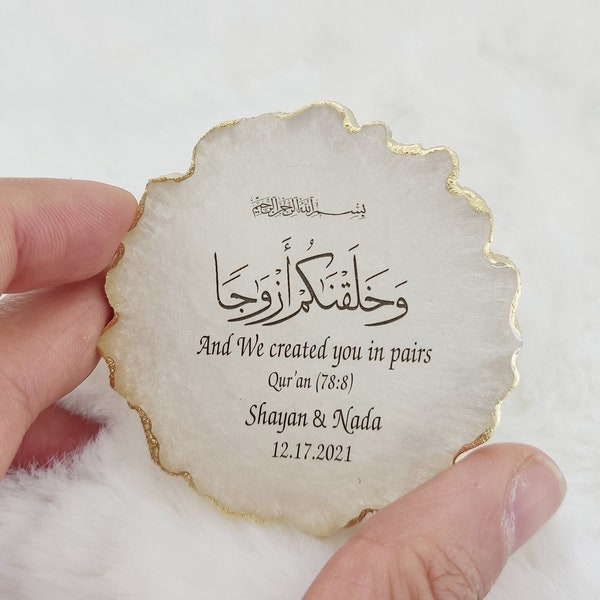 بسم الله الرحمن الرحيم
وَخَلَقْنَاكُمْ أَزْوَاجًا
And We created you in pairs
Qur'an (78:8)
Shayan & Nada
12.17.2021